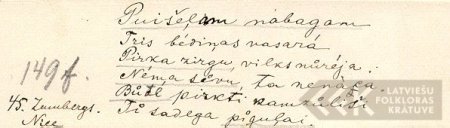 Puišeļam nabagam
Trīs bēdiņas vasarā
Pirka zirgu, vilks nūrēja;
Ņēma sevu, ta nenāca,
Būtē pirkti kamzūlis
Ti sadega pīguļaĩ.
1498.
45. Zumbergs.
Nīce
LATVIEŠU
FOLKLORAS
KRĀTUVE